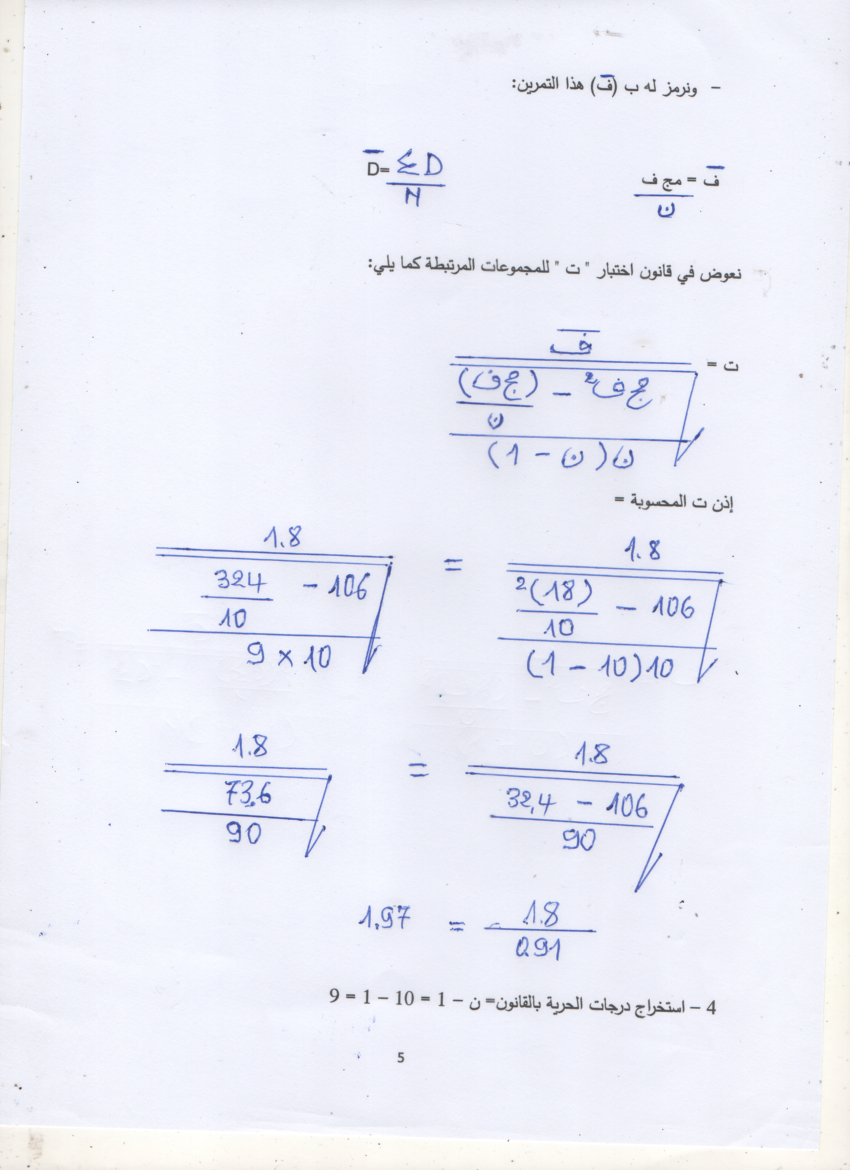 - ونرمز له ب (فَ) هذا التمرين:
ف̄ = مج ف / ن    D̄= ΣD / N
نعوض في قانون اختبار " ت " للمجموعات المرتبطة كما يلي:
ت = ف̄ / √( (مج ف² - (مج ف) / ن) / ن(ن - 1) )
إذن ت المحسوبة =
1.8 / √( (106 - (18)² / 10) / 10(10 - 1) ) = 1.8 / √( (106 - 324 / 10) / 10 × 9 )
1.8 / √( (106 - 32,4) / 90 ) = 1.8 / √( 73,6 / 90 )
1.8 / 0.91 = 1,97
4 – استخراج درجات الحرية بالقانون= ن – 1 = 10 – 1 = 9
5